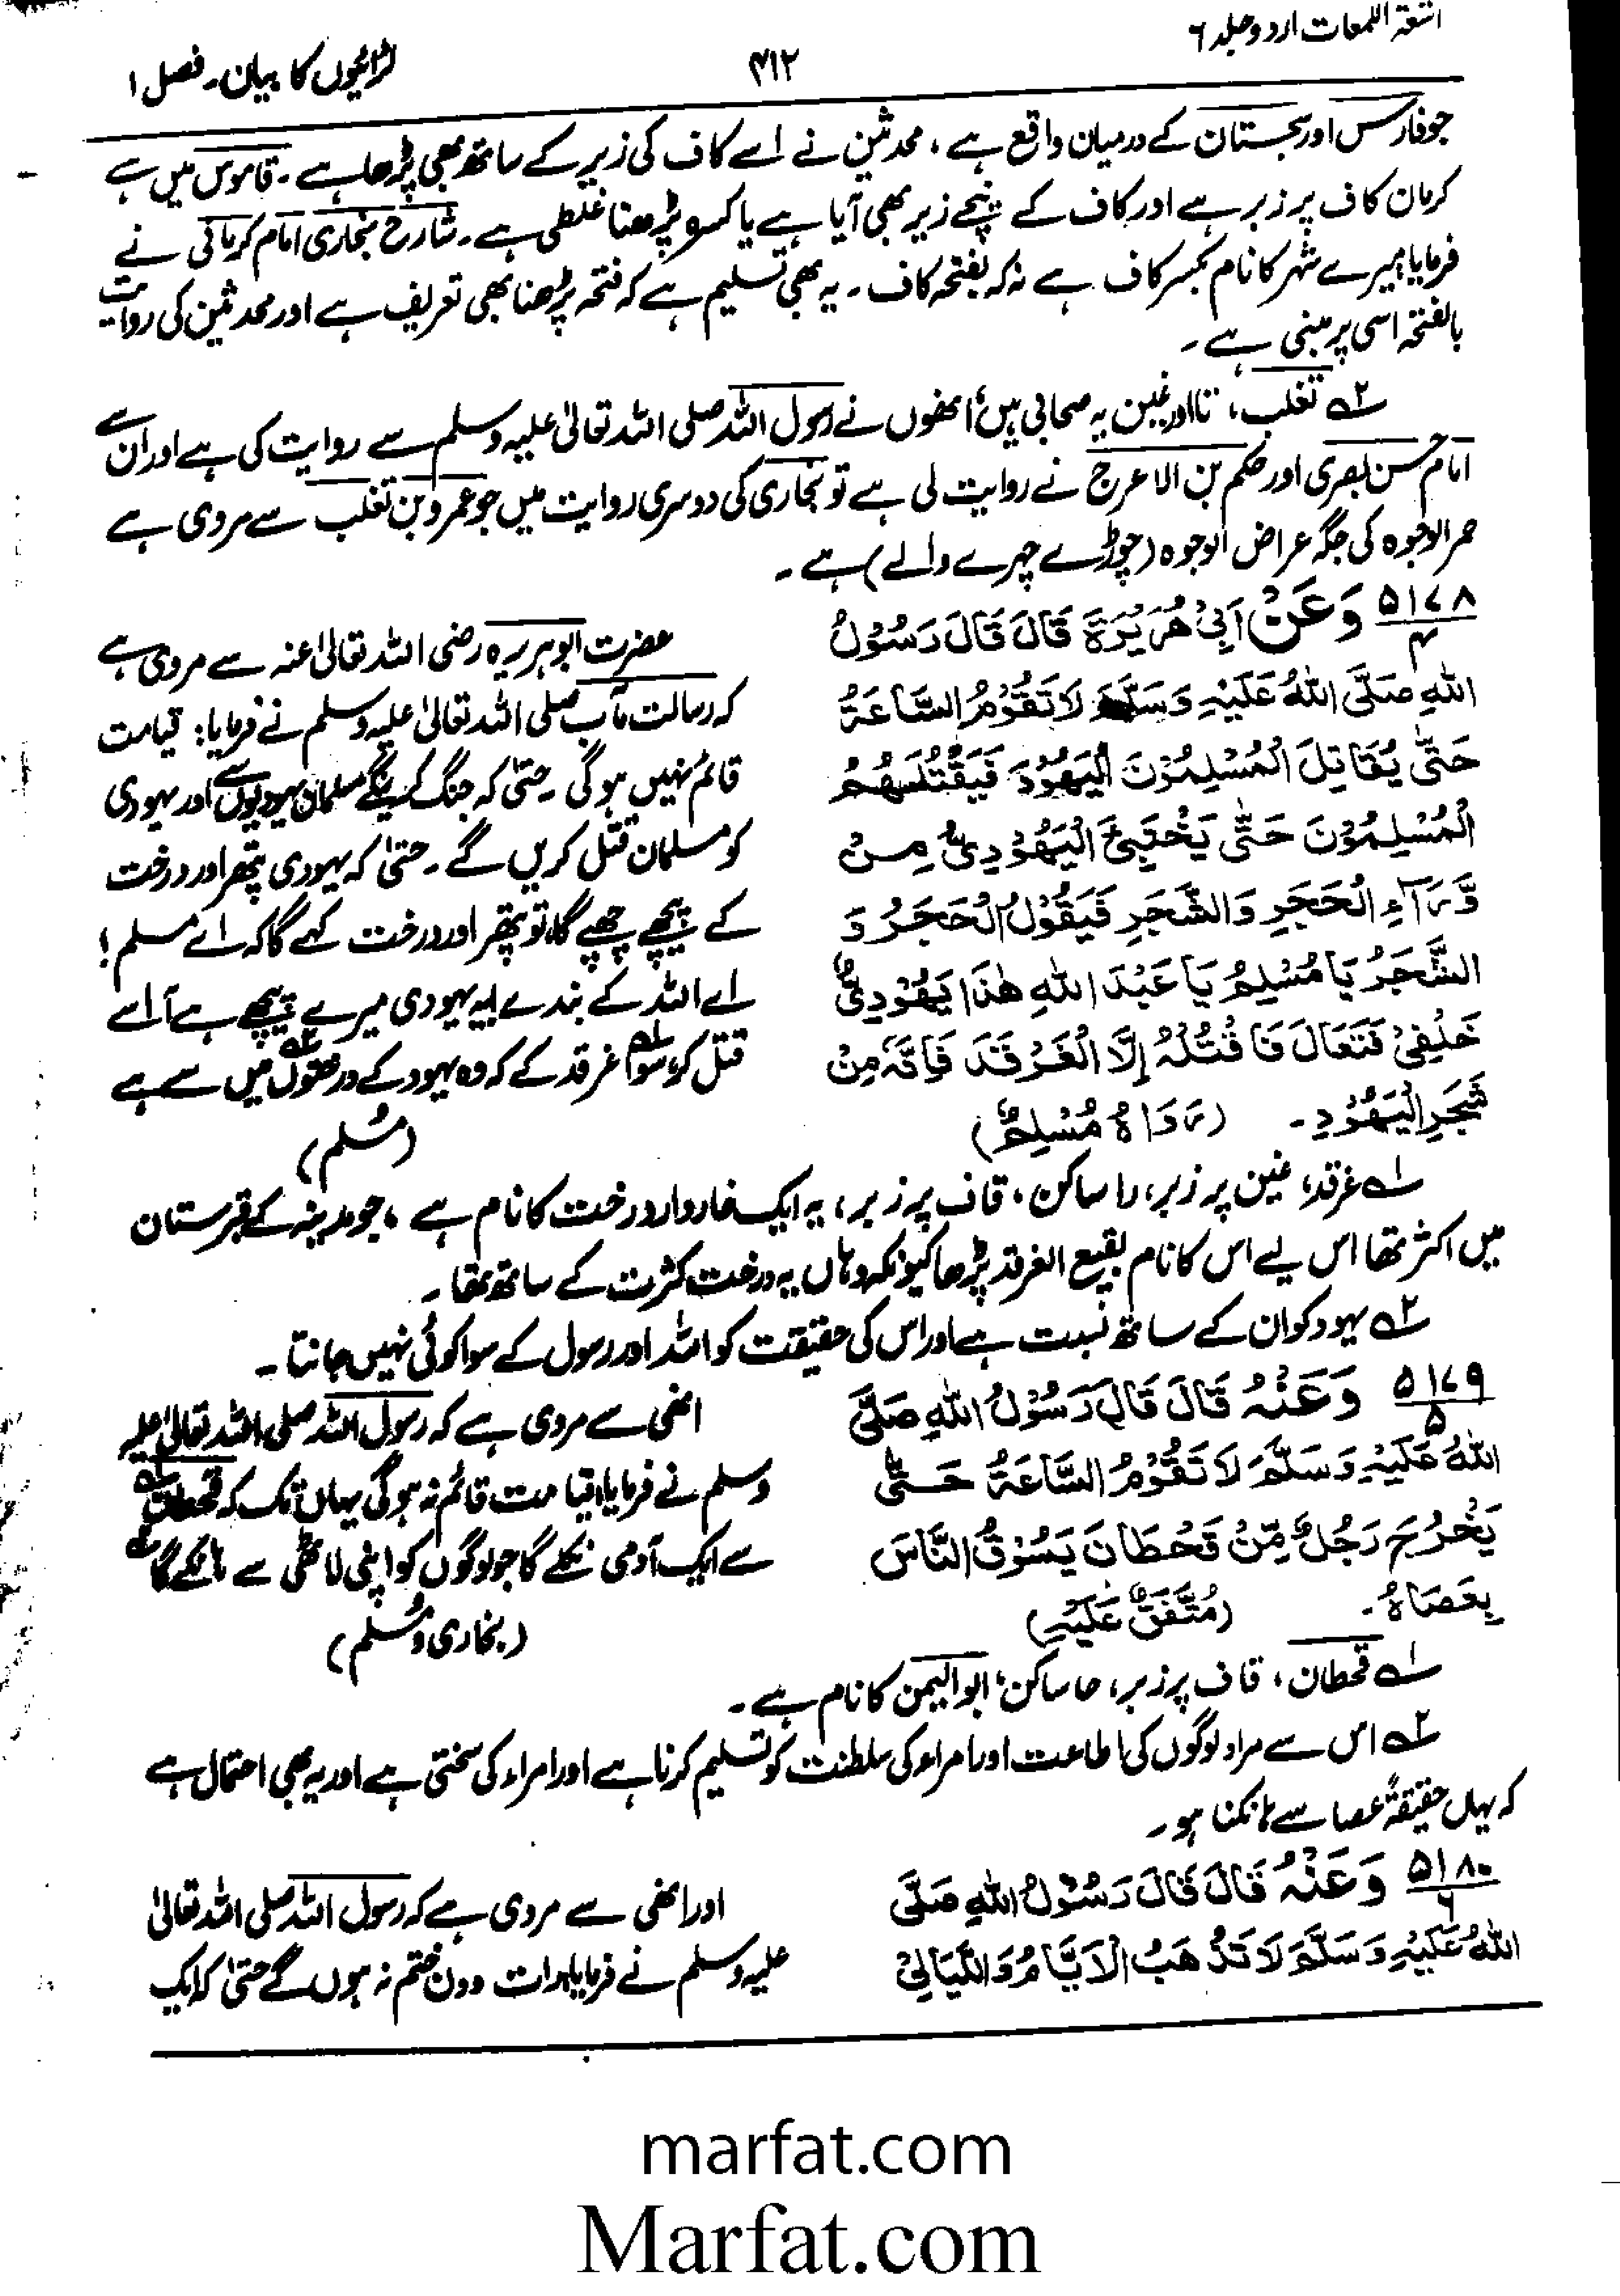 اشعۃ اللمعات اردو جلد ۶
۴۱۲
لڑائیوں کا بیان۔ فصل ۱
جو فارس اور سجستان کے درمیان واقع ہے ، محدثین نے اسے کاف کی زیر کے ساتھ بھی پڑھا ہے ۔ قاموس میں ہے
کرمان کاف پر زبر ہے اور کاف کے نیچے زیر بھی آیا ہے یا کسرہ پڑھنا غلطی ہے ۔ شارح بخاری امام کرمانی نے
فرمایا میرے شہر کا نام بکسر کاف ہے نہ کہ بفتحہ کاف ۔ یہ بھی تسلیم ہے کہ فتحہ پڑھنا بھی تعریف ہے اور محدثین کی روایت
بالفتحہ اسی پر مبنی ہے ۔
۲؎ تغلب، تا اور غین یہ صحابی ہیں، انھوں نے رسول اللہ صلی اللہ تعالیٰ علیہ وسلم سے روایت کی ہے اور ان سے
امام حسن بصری اور حکم بن الاعرج نے روایت لی ہے تو بخاری کی دوسری روایت میں جو عمرو بن تغلب سے مروی ہے
حمر الوجوہ کی جگہ عراض الوجوہ (چوڑے چہرے والے) ہے ۔
۵۱۷۸/۴ وَعَنْ اَبِيْ هُرَيْرَةَ قَالَ قَالَ رَسُوْلُ
اللهِ صَلَّى اللهُ عَلَيْهِ وَسَلَّمَ لَا تَقُوْمُ السَّاعَةُ
حَتّٰى يُقَاتِلَ الْمُسْلِمُوْنَ الْيَهُوْدَ فَيَقْتُلَهُمُ
الْمُسْلِمُوْنَ حَتّٰى يَخْتَبِئَ الْيَهُوْدِيُّ مِنْ
وَّرَآءِ الْحَجَرِ وَالشَّجَرِ فَيَقُوْلُ الْحَجَرُ وَ
الشَّجَرُ يَا مُسْلِمُ يَا عَبْدَ اللهِ هٰذَا يَهُوْدِيٌّ
خَلْفِيْ فَتَعَالَ فَاقْتُلْهُ اِلَّا الْغَرْقَدَ فَاِنَّهٗ مِنْ
شَجَرِ الْيَهُوْدِ۔ (رَوَاهُ مُسْلِمٌ)
حضرت ابوہریرہ رضی اللہ تعالیٰ عنہ سے مروی ہے
کہ رسالت مآب صلی اللہ تعالیٰ علیہ وسلم نے فرمایا: قیامت
قائم نہیں ہوگی ۔ حتیٰ کہ جنگ کریں گے مسلمان یہودیوں سے اور یہودی
کو مسلمان قتل کریں گے ۔ حتیٰ کہ یہودی پتھر اور درخت
کے پیچھے چھپے گا، تو پتھر اور درخت کہے گا کہ اے مسلم !
اے اللہ کے بندے! یہ یہودی میرے پیچھے ہے آ اسے
قتل کر، سوا۱؎ غرقد کے کہ وہ یہود کے درختوں۲؎ میں سے ہے
(مُسلم)
۱؎ غرقد، غین پر زبر، را ساکن ، قاف پر زبر ، یہ ایک خاردار درخت کا نام ہے ، جو مدینہ کے قبرستان
میں اکثر تھا اس لیے اس کا نام بقیع الغرقد پڑھا کیونکہ وہاں یہ درخت کثرت کے ساتھ تھا ۔
۲؎ یہود کو ان کے ساتھ نسبت ہے اور اس کی حقیقت کو اللہ اور رسول کے سوا کوئی نہیں جانتا ۔
۵۱۷۹/۵ وَعَنْهُ قَالَ قَالَ رَسُوْلُ اللهِ صَلَّى
اللهُ عَلَيْهِ وَسَلَّمَ لَا تَقُوْمُ السَّاعَةُ حَتّٰى
يَخْرُجَ رَجُلٌ مِّنْ قَحْطَانَ يَسُوْقُ النَّاسَ
بِعَصَاهُ۔ (مُتَّفَقٌ عَلَيْهِ)
انھی سے مروی ہے کہ رسول اللہ صلی اللہ تعالیٰ علیہ
وسلم نے فرمایا، قیامت قائم نہ ہوگی یہاں تک کہ قحطان۱؎
سے ایک آدمی نکلے گا جو لوگوں کو اپنی لاٹھی سے ہانکے گا۲؎
(بخاری و مُسلم)
۱؎ قحطان ، قاف پر زبر، حا ساکن، ابو الیمن کا نام ہے ۔
۲؎ اس سے مراد لوگوں کی اطاعت اور امراء کی سلطنت کو تسلیم کرنا ہے اور امراء کی سختی ہے اور یہ بھی احتمال ہے
کہ یہاں حقیقۃً عصا سے ہانکنا ہو ۔
۵۱۸۰/۶ وَعَنْهُ قَالَ قَالَ رَسُوْلُ اللهِ صَلَّى
اللهُ عَلَيْهِ وَسَلَّمَ لَا تَذْهَبُ الْاَيَّامُ وَاللَّيَالِيْ
اور انھی سے مروی ہے کہ رسول اللہ صلی اللہ تعالیٰ
علیہ وسلم نے فرمایا، رات و دن ختم نہ ہوں گے حتیٰ کہ ایک
marfat.com
Marfat.com